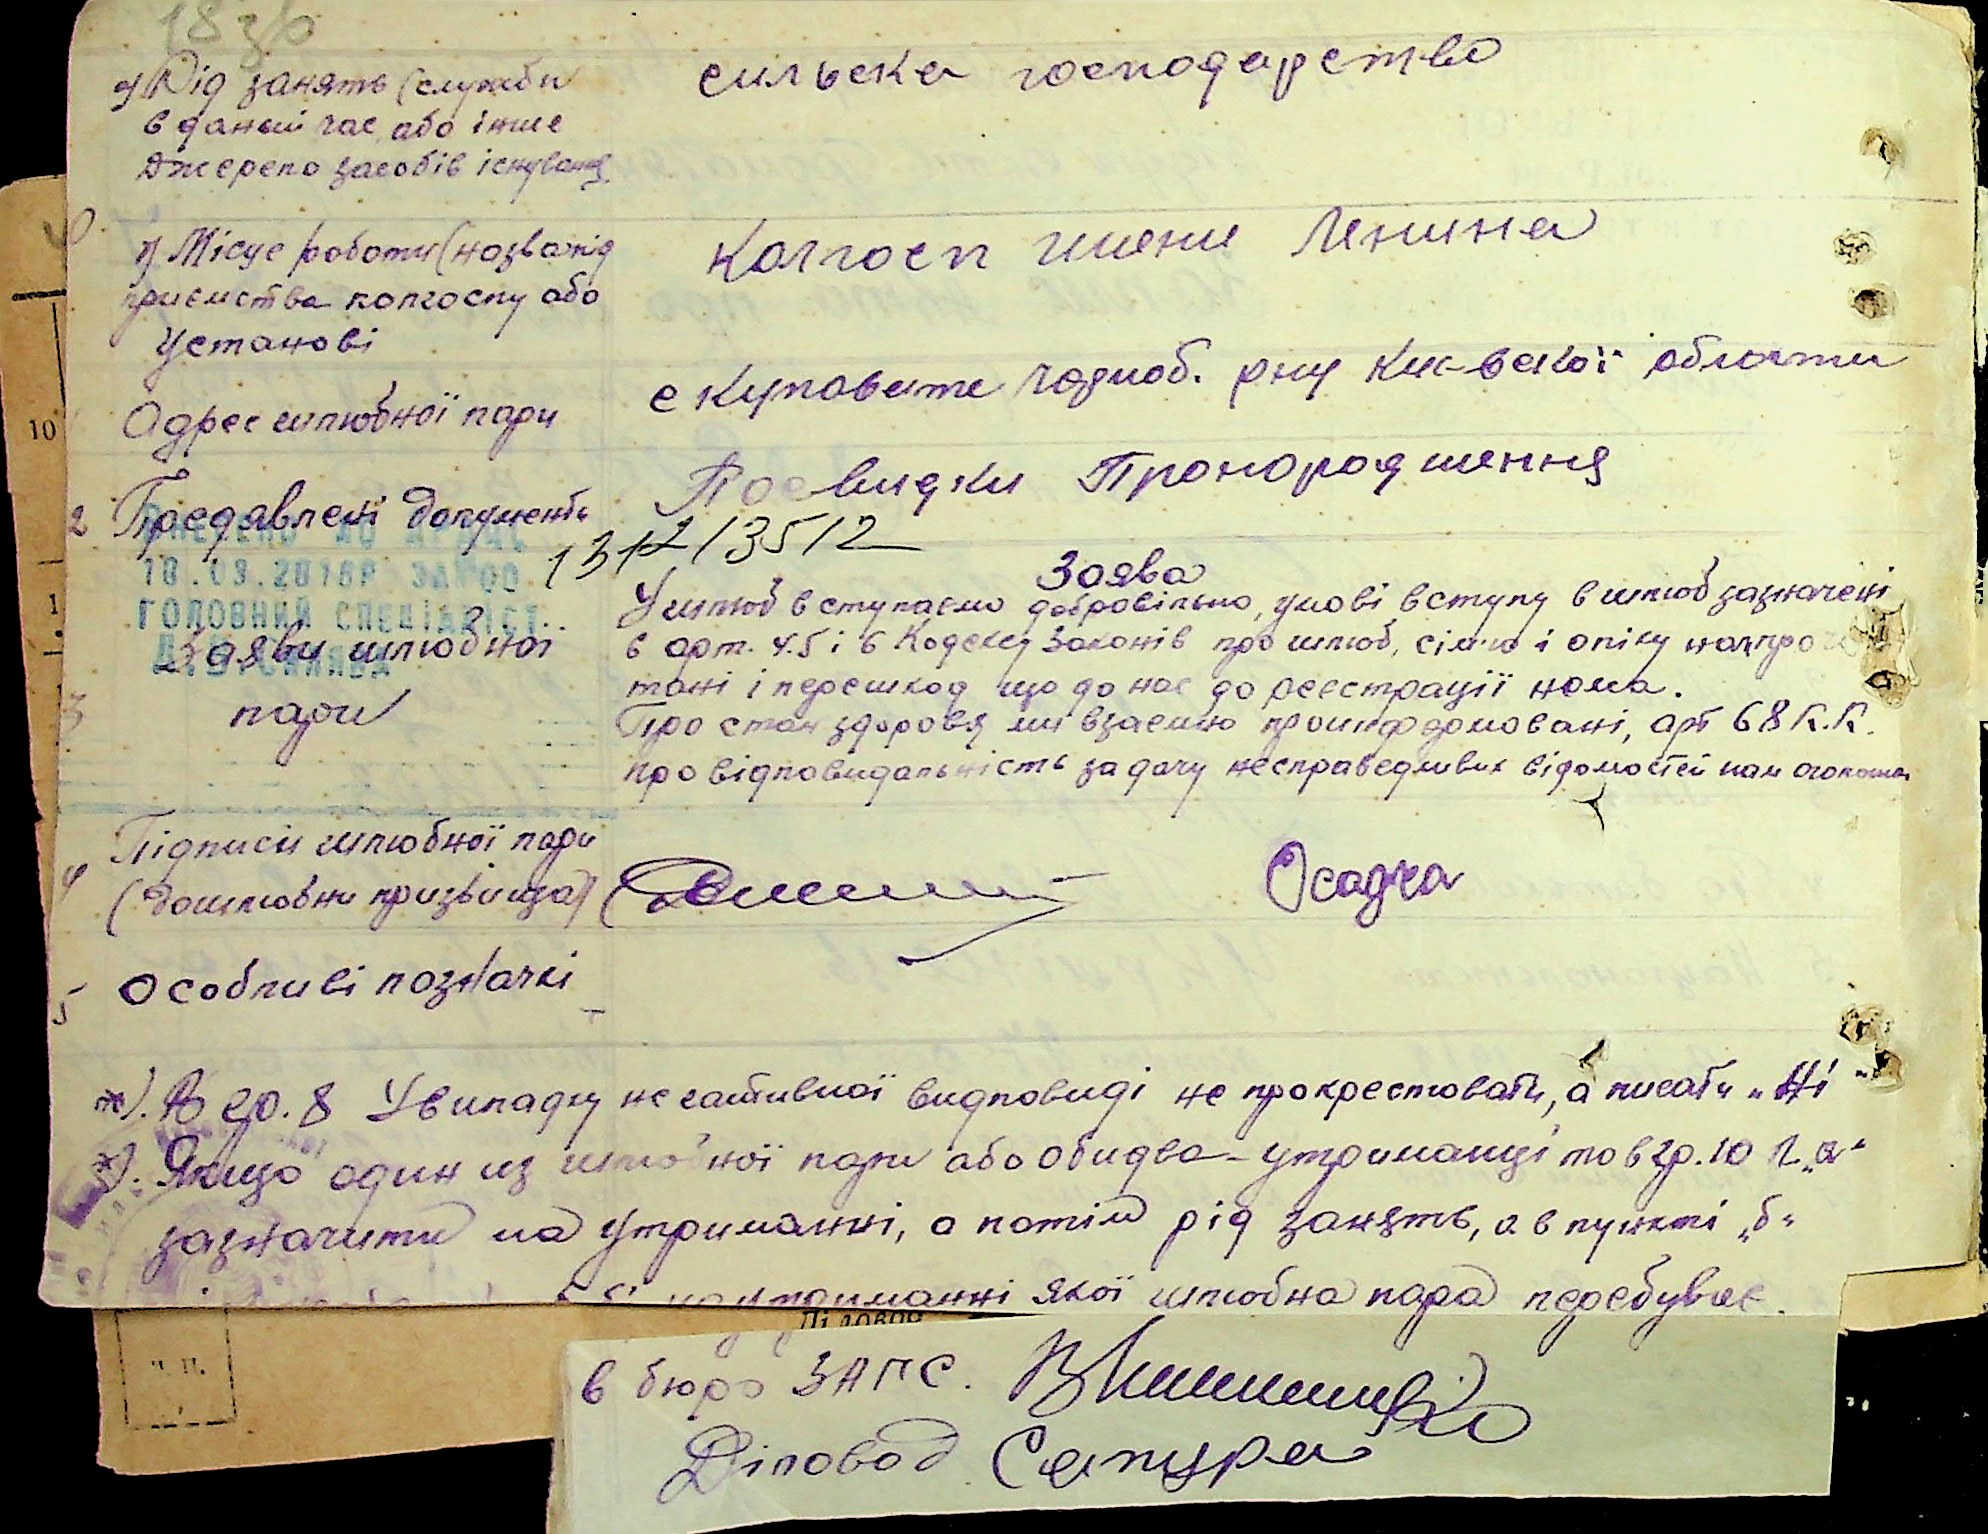 18 зв
а) Рід занять (служби
в даний час або інше
джерело засобів існування
сильска господарство
б) Місце роботи (назва під
приємства колгоспу або
Установі
Колгосп имени Ленина
Адрес шлюбної пари
с Куповате Чорноб. рну Киевскої области
2 Предявлені документи
Посвидки Пронородження
1312/35/2
10.03.2016Р ЗАГОО
ГОЛОВНИЙ СПЕЦІАЛІСТ
3 Заяви шлюбної
пари
Заява
У шлюб вступаємо добровільно, умові вступу в шлюб зазначені
в арт. 4.5 і 6 Кодексу Законів про шлюб, сімю і опіку нам прочи
тані і перешкод що до нас до реєстрації нема.
Про стан здоровя ми взаємно проинформовані, арт 68 К.К.
про відповидальність за дачу несправедливих відомостей нам оголошен
4 Підписи шлюбної пари
(дошлюбни призвища)
Осадча
5 Особливі позначкі
ж). В гр. 8 У випадку негативної видповиді не прокрестовать, а писать „Ні"
ж). Якщо один из шлюбної пари або обидва - утриманці то в гр. 10 п. „а"
зазначити на утриманні, а потім рід занять, а в пункті „б"
на утриманні якої шлюбна пара перебуває.
Ділової
10
1
М. П.
в бюро ЗАГС.
Діловод Сапура